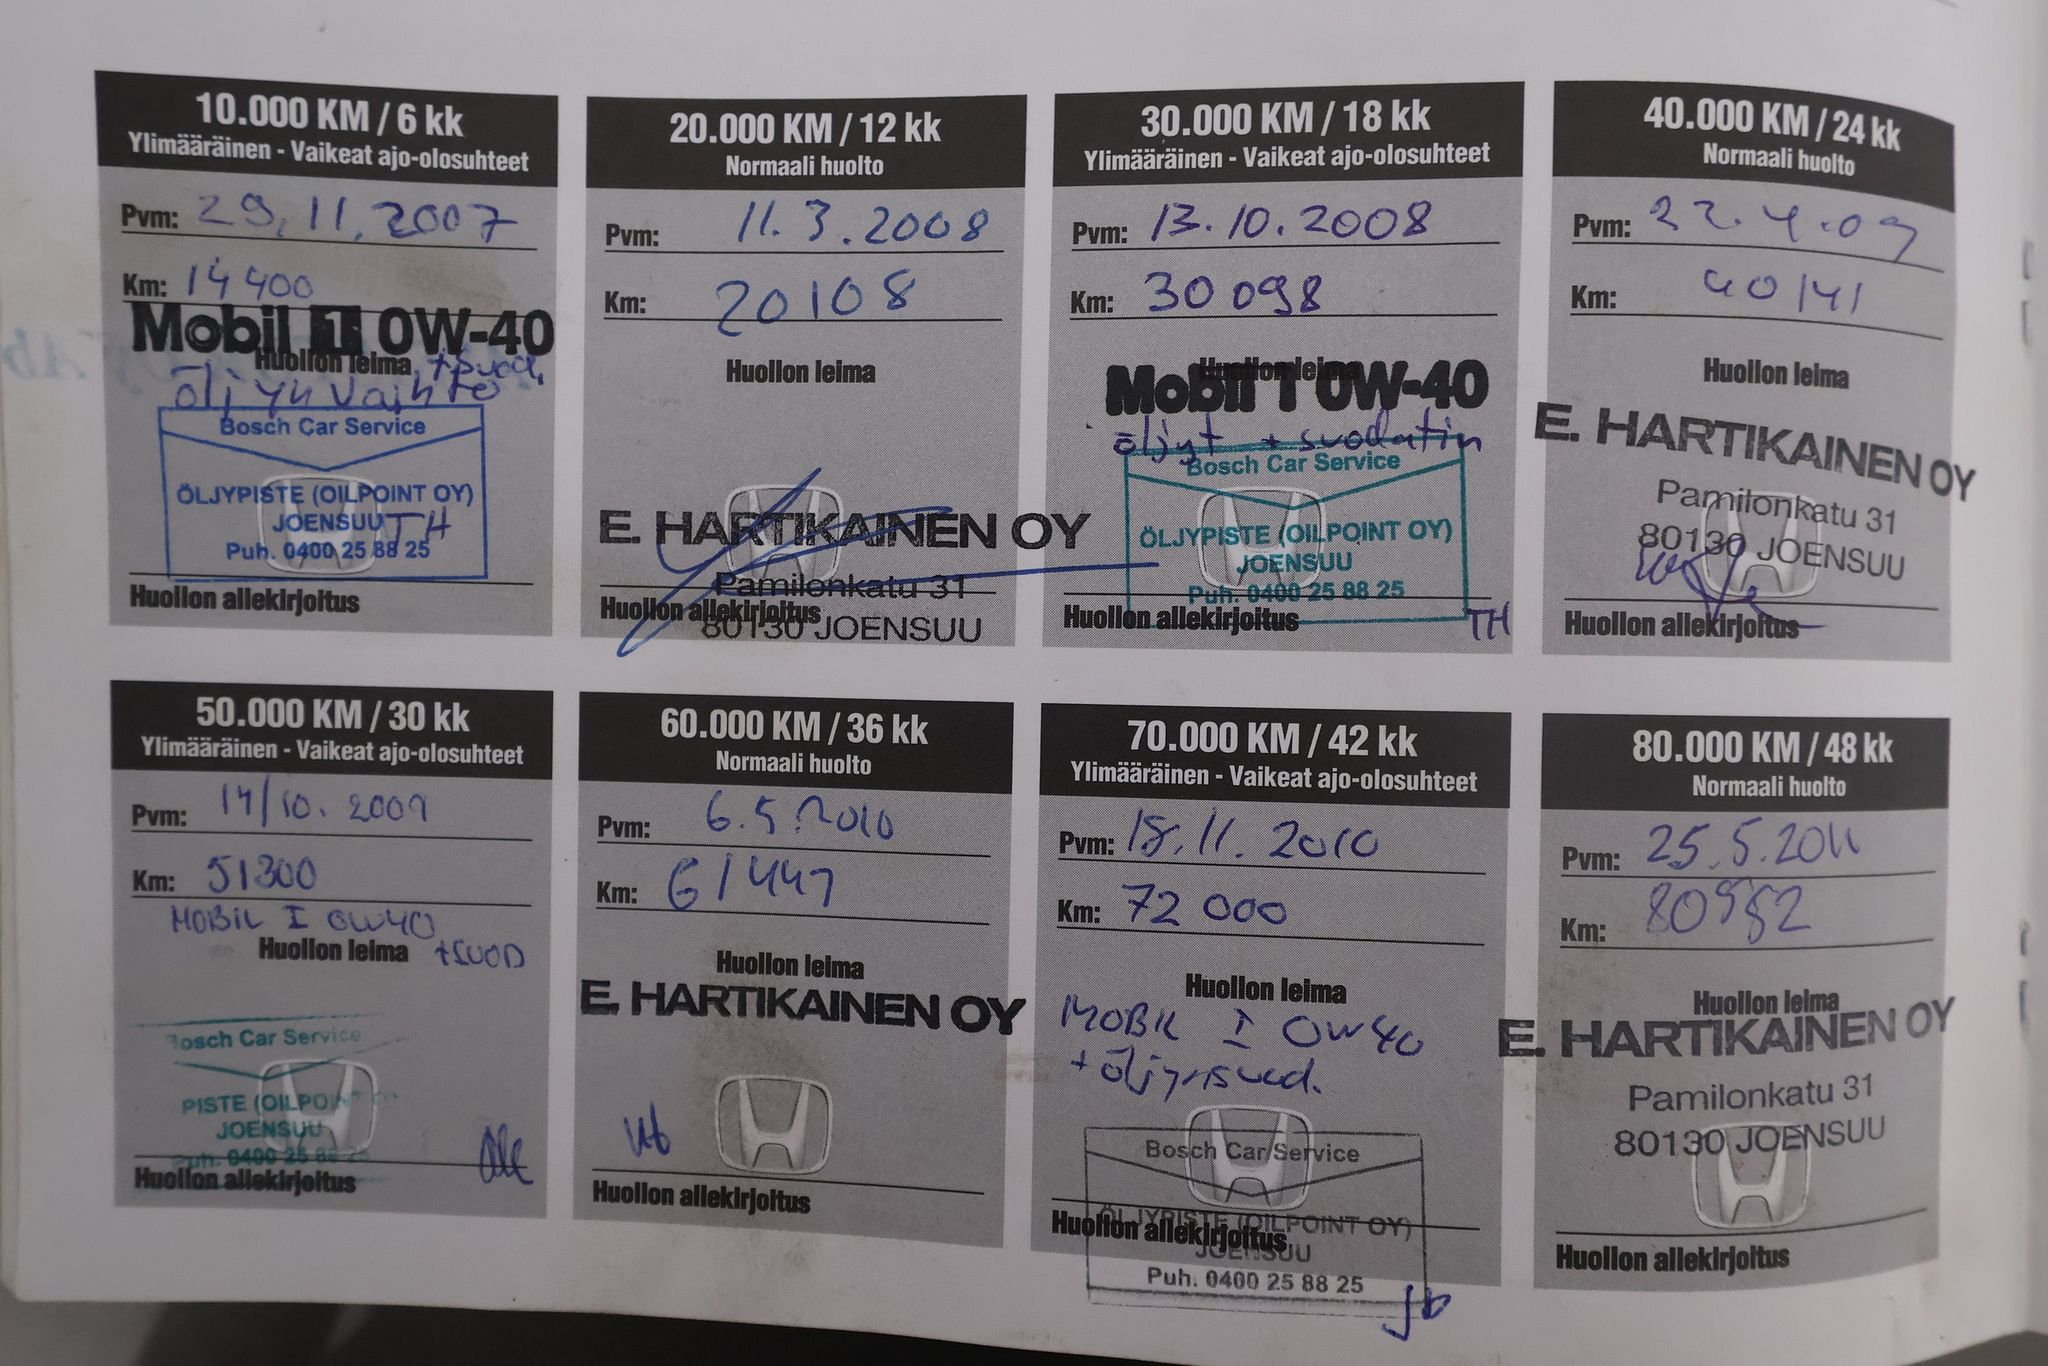 10.000 KM / 6 kk
Ylimääräinen - Vaikeat ajo-olosuhteet
Pvm: 29.11.2007
Km: 14400
Mobil 1 0W-40
Huollon leima + suod.
öljyn vaihto
Bosch Car Service
ÖLJYPISTE (OILPOINT OY)
JOENSUU TH
Puh. 0400 25 88 25
Huollon allekirjoitus
20.000 KM / 12 kk
Normaali huolto
Pvm: 11.3.2008
Km: 20108
Huollon leima
E. HARTIKAINEN OY
Pamilonkatu 31
Huollon allekirjoitus
80130 JOENSUU
30.000 KM / 18 kk
Ylimääräinen - Vaikeat ajo-olosuhteet
Pvm: 13.10.2008
Km: 30098
Huollon leima
Mobil 1 0W-40
öljyt + suodatin
Bosch Car Service
ÖLJYPISTE (OILPOINT OY)
JOENSUU
Puh. 0400 25 88 25
Huollon allekirjoitus TH
40.000 KM / 24 kk
Normaali huolto
Pvm: 22.4.09
Km: 40141
Huollon leima
E. HARTIKAINEN OY
Pamilonkatu 31
80130 JOENSUU
Huollon allekirjoitus
50.000 KM / 30 kk
Ylimääräinen - Vaikeat ajo-olosuhteet
Pvm: 14/10.2009
Km: 51300
MOBIL I 0W40
Huollon leima + SUOD
Bosch Car Service
PISTE (OILPOINT OY)
JOENSUU
Puh. 0400 25 88
Huollon allekirjoitus
60.000 KM / 36 kk
Normaali huolto
Pvm: 6.5.2010
Km: 61447
Huollon leima
E. HARTIKAINEN OY
Huollon allekirjoitus
70.000 KM / 42 kk
Ylimääräinen - Vaikeat ajo-olosuhteet
Pvm: 18.11.2010
Km: 72 000
Huollon leima
MOBIL I 0W40
+ öljynsuod.
Bosch Car Service
ÖLJYPISTE (OILPOINT OY)
Huollon allekirjoitus
JOENSUU
Puh. 0400 25 88 25
80.000 KM / 48 kk
Normaali huolto
Pvm: 25.5.2011
Km: 80952
Huollon leima
E. HARTIKAINEN OY
Pamilonkatu 31
80130 JOENSUU
Huollon allekirjoitus